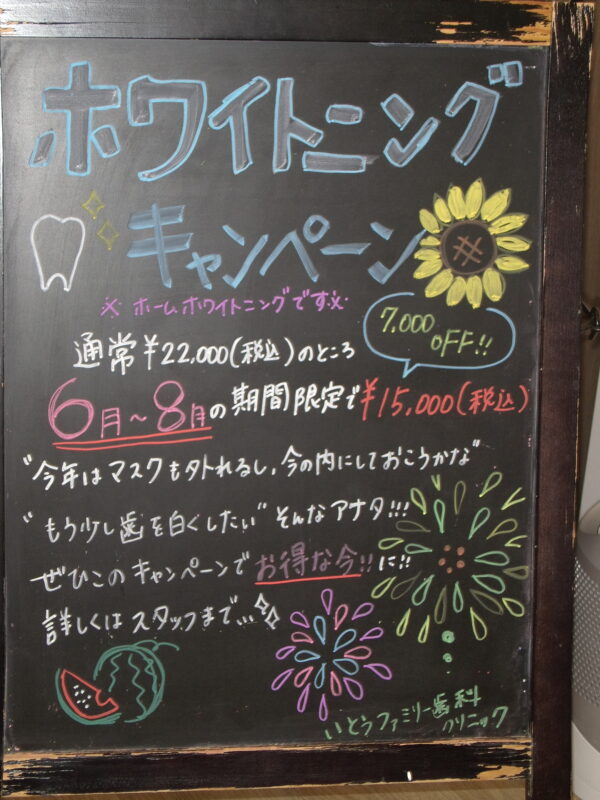 ホワイトニング
キャンペーン
※ホームホワイトニングです※
7,000
OFF!!
通常¥22,000(税込)のところ
6月~8月の期間限定で¥15,000(税込)
"今年はマスクも外れるし,今の内にしておこうかな"
"もう少し歯を白くしたい"そんなアナタ!!!
ぜひこのキャンペーンでお得な今!!に!!
詳しくはスタッフまで...
いとうファミリー歯科
クリニック